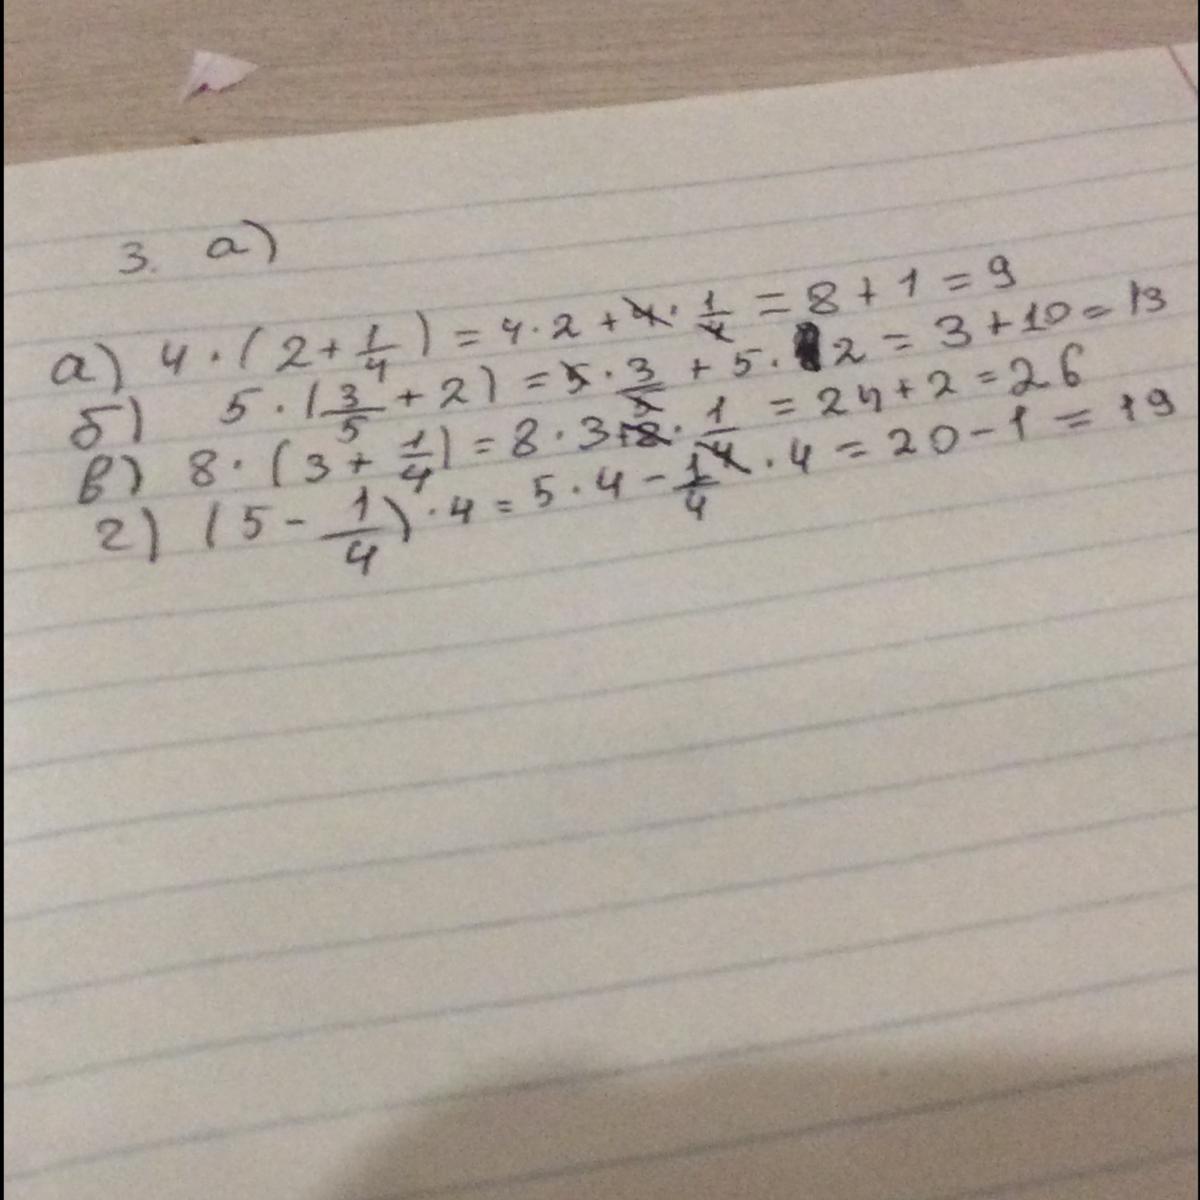 3. а)
а) 4 · (2 + 1/4) = 4 · 2 + 4 · 1/4 = 8 + 1 = 9
б) 5 · (3/5 + 2) = 5 · 3/5 + 5 · 2 = 3 + 10 = 13
в) 8 · (3 + 1/4) = 8 · 3 + 8 · 1/4 = 24 + 2 = 26
г) (5 - 1/4) · 4 = 5 · 4 - 1/4 · 4 = 20 - 1 = 19